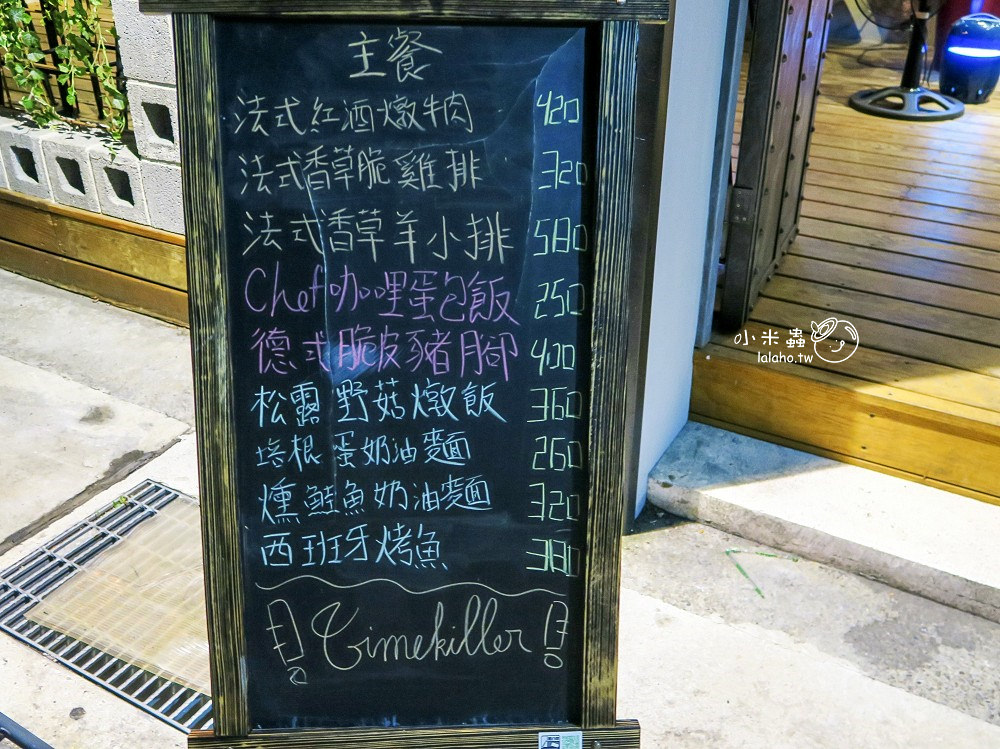 主餐
法式紅酒燉牛肉 420
法式香草脆雞排 320
法式香草羊小排 580
Chef咖哩蛋包飯 250
德式脆皮豬腳 400
松露野菇燉飯 360
培根蛋奶油麵 260
燻鮭魚奶油麵 320
西班牙烤魚 380
Timekiller
小米蟲
lalaho.tw